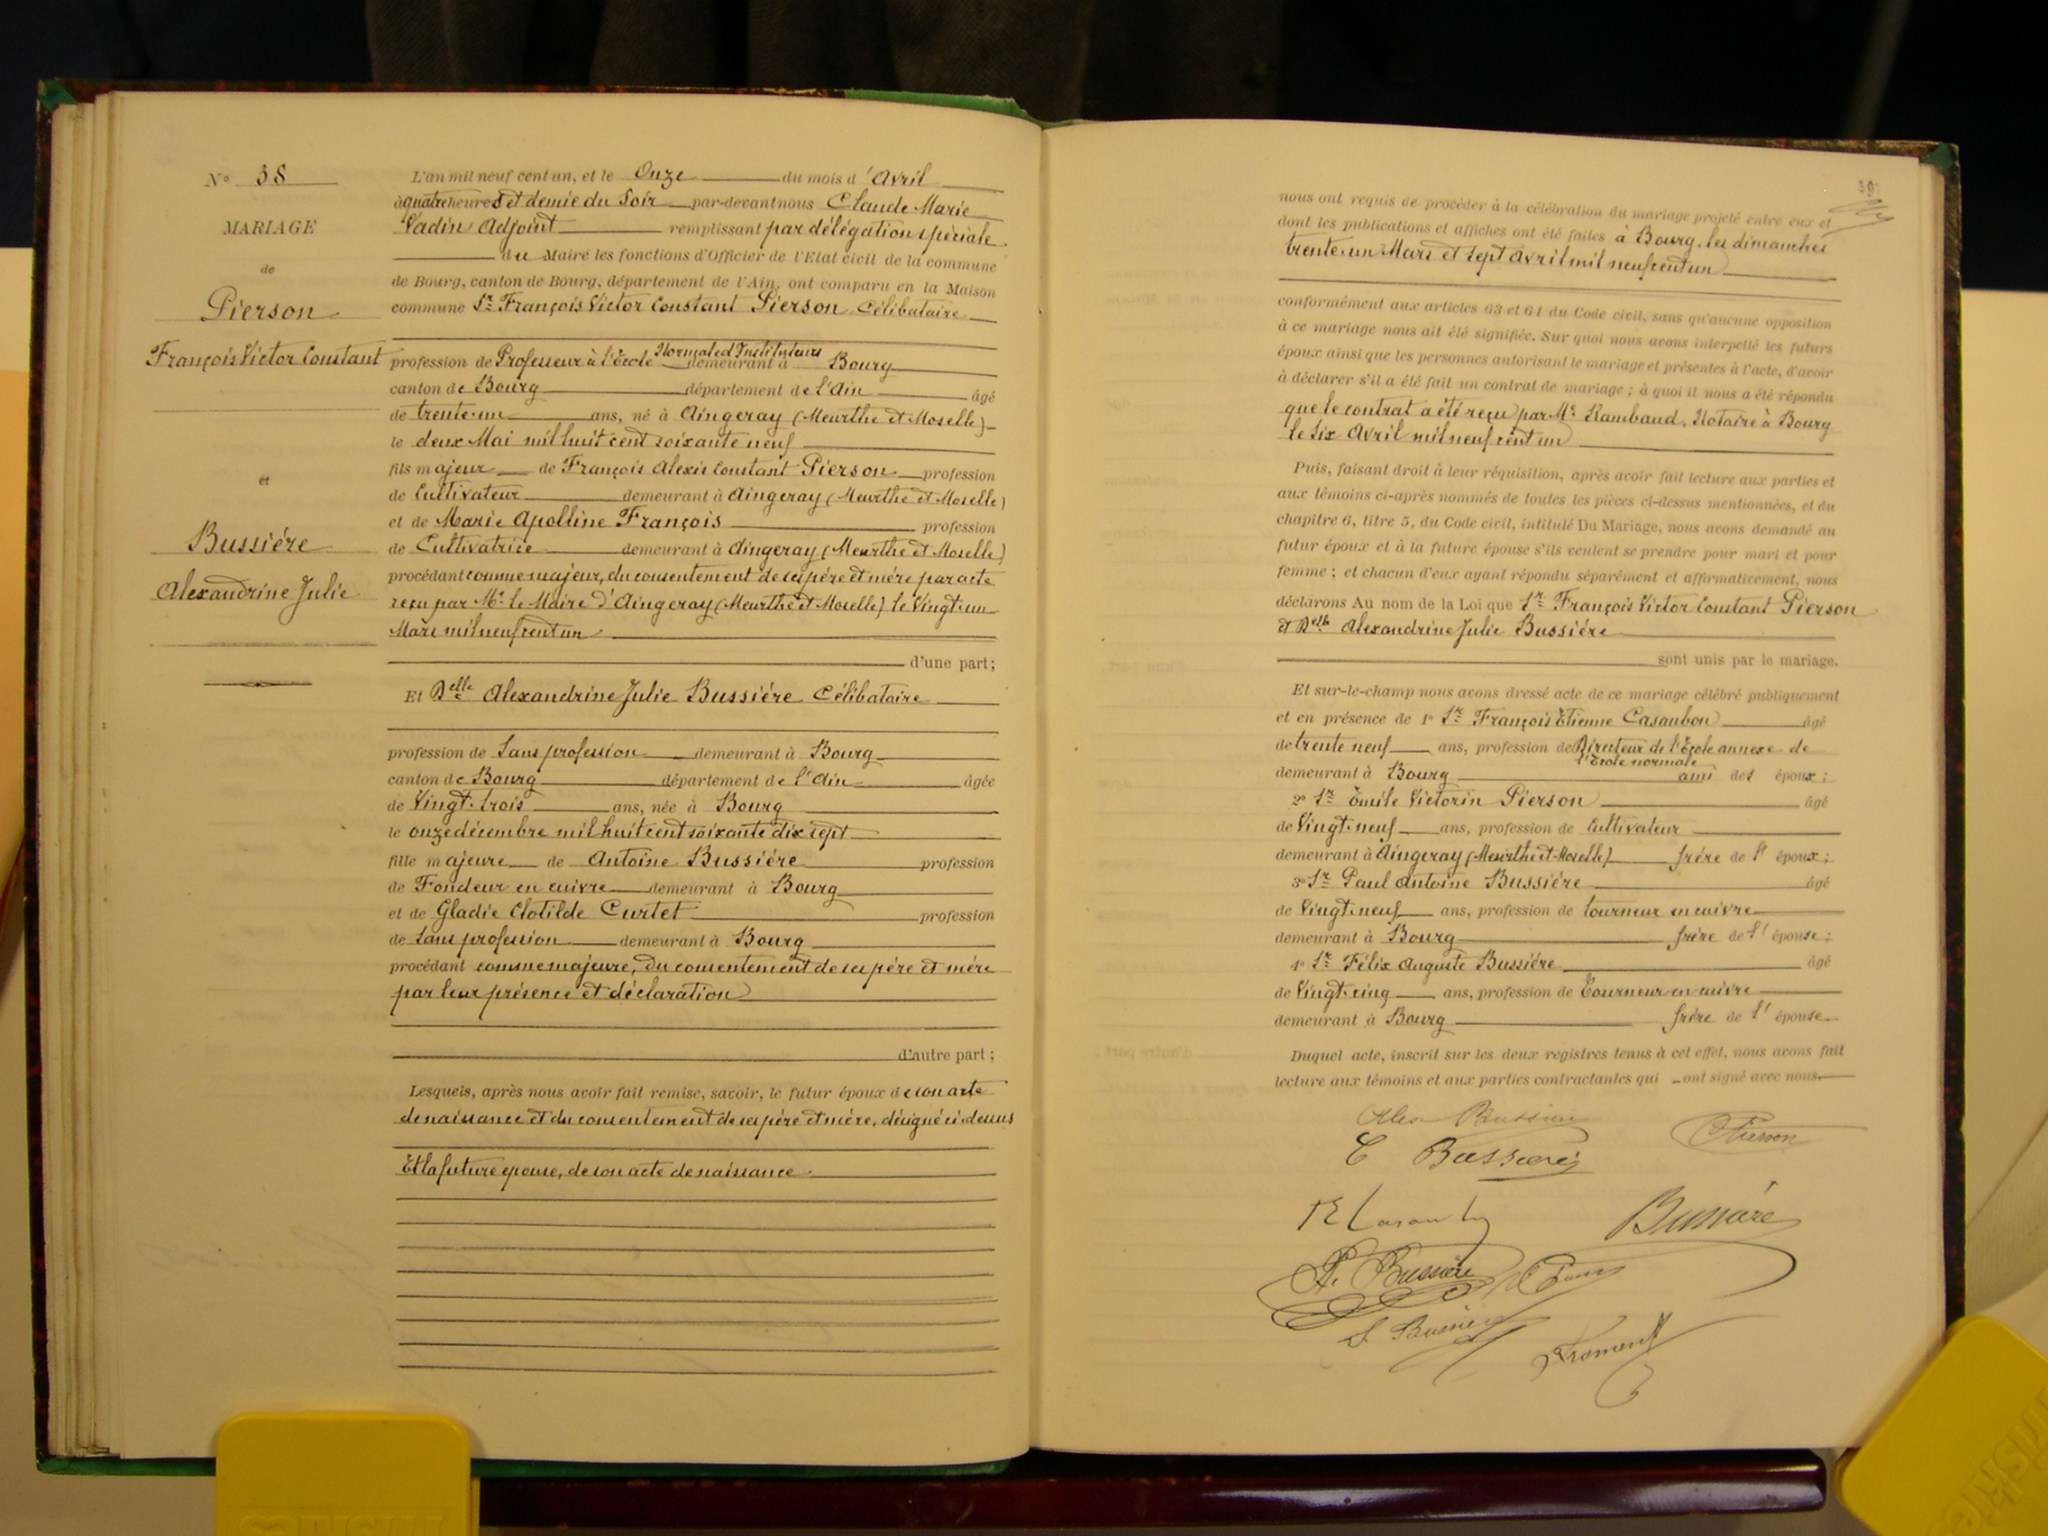 N° 38
MARIAGE
de
Pierson
François Victor Constant
et
Bussiére
Alexandrine Julie
L'an mil neuf cent un, et le Onze du mois d'Avril
à quatre heures et demie du Soir par-devant nous Claude Marie
Vadin Adjoint remplissant par délégation spéciale
du Maire les fonctions d'Officier de l'Etat civil de la commune
de Bourg, canton de Bourg, département de l'Ain, ont comparu en la Maison
commune Sr François Victor Constant Pierson Célibataire
profession de Professeur à l'École Normale d'Instituteurs demeurant à Bourg
canton de Bourg département de l'Ain âgé
de trente-un ans, né à Aingeray (Meurthe et Moselle)
le deux Mai mil huit cent soixante neuf
fils majeur de François Alexis Constant Pierson profession
de Cultivateur demeurant à Aingeray (Meurthe et Moselle)
et de Marie Apolline François profession
de Cultivatrice demeurant à Aingeray (Meurthe et Moselle)
procédant comme majeur, du consentement de ses pére et mére par acte
reçu par Mr le Maire d'Aingeray (Meurthe et Moselle) le Vingt-un
Mars mil neuf cent un
d'une part;
Et Delle Alexandrine Julie Bussiére Célibataire
profession de Sans profession demeurant à Bourg
canton de Bourg département de l'Ain âgée
de Vingt-trois ans, née à Bourg
le onze décembre mil huit cent soixante dix sept
fille majeure de Antoine Bussiére profession
de Fondeur en cuivre demeurant à Bourg
et de Gladie Clotilde Curtet profession
de Sans profession demeurant à Bourg
procédant comme majeure, du consentement de ses pére et mére
par leur présence et déclaration
d'autre part;
Lesquels, après nous avoir fait remise, savoir, le futur époux de son acte
de naissance et du consentement de ses pére et mére, désigné ci-dessus
Et la future épouse, de son acte de naissance
nous ont requis de procéder à la célébration du mariage projeté entre eux et
dont les publications et affiches ont été faites à Bourg, les dimanches
trente-un Mars et sept Avril mil neuf cent un
conformément aux articles 63 et 64 du Code civil, sans qu'aucune opposition
à ce mariage nous ait été signifiée. Sur quoi nous avons interpellé les futurs
époux ainsi que les personnes autorisant le mariage et présentes à l'acte, d'avoir
à déclarer s'il a été fait un contrat de mariage; à quoi il nous a été répondu
que le contrat a été reçu par Me Rambaud, Notaire à Bourg
le six Avril mil neuf cent un
Puis, faisant droit à leur réquisition, après avoir fait lecture aux parties et
aux témoins ci-après nommés de toutes les pièces ci-dessus mentionnées, et du
chapitre 6, titre 5, du Code civil, intitulé Du Mariage, nous avons demandé au
futur époux et à la future épouse s'ils veulent se prendre pour mari et pour
femme; et chacun d'eux ayant répondu séparément et affirmativement, nous
déclarons Au nom de la Loi que Sr François Victor Constant Pierson
et Delle Alexandrine Julie Bussiére
sont unis par le mariage.
Et sur-le-champ nous avons dressé acte de ce mariage célébré publiquement
et en présence de 1° Sr François Étienne Casaubon âgé
de trente neuf ans, profession de Directeur de l'École annexe de
l'École normale
demeurant à Bourg ami des époux;
2° Sr Émile Victorin Pierson âgé
de Vingt-neuf ans, profession de Cultivateur
demeurant à Aingeray (Meurthe et Moselle) frére de l' époux;
3° Sr Paul Antoine Bussiére âgé
de Vingt-neuf ans, profession de tourneur en cuivre
demeurant à Bourg frére de l' épouse;
4° Sr Félix Auguste Bussiére âgé
de Vingt-cinq ans, profession de Tourneur en cuivre
demeurant à Bourg frére de l' épouse
Duquel acte, inscrit sur les deux registres tenus à cet effet, nous avons fait
lecture aux témoins et aux parties contractantes qui ont signé avec nous.
Alex Bussière
Pierson
C Bussière
Bussière
P. Bussière
Bussière
Froment